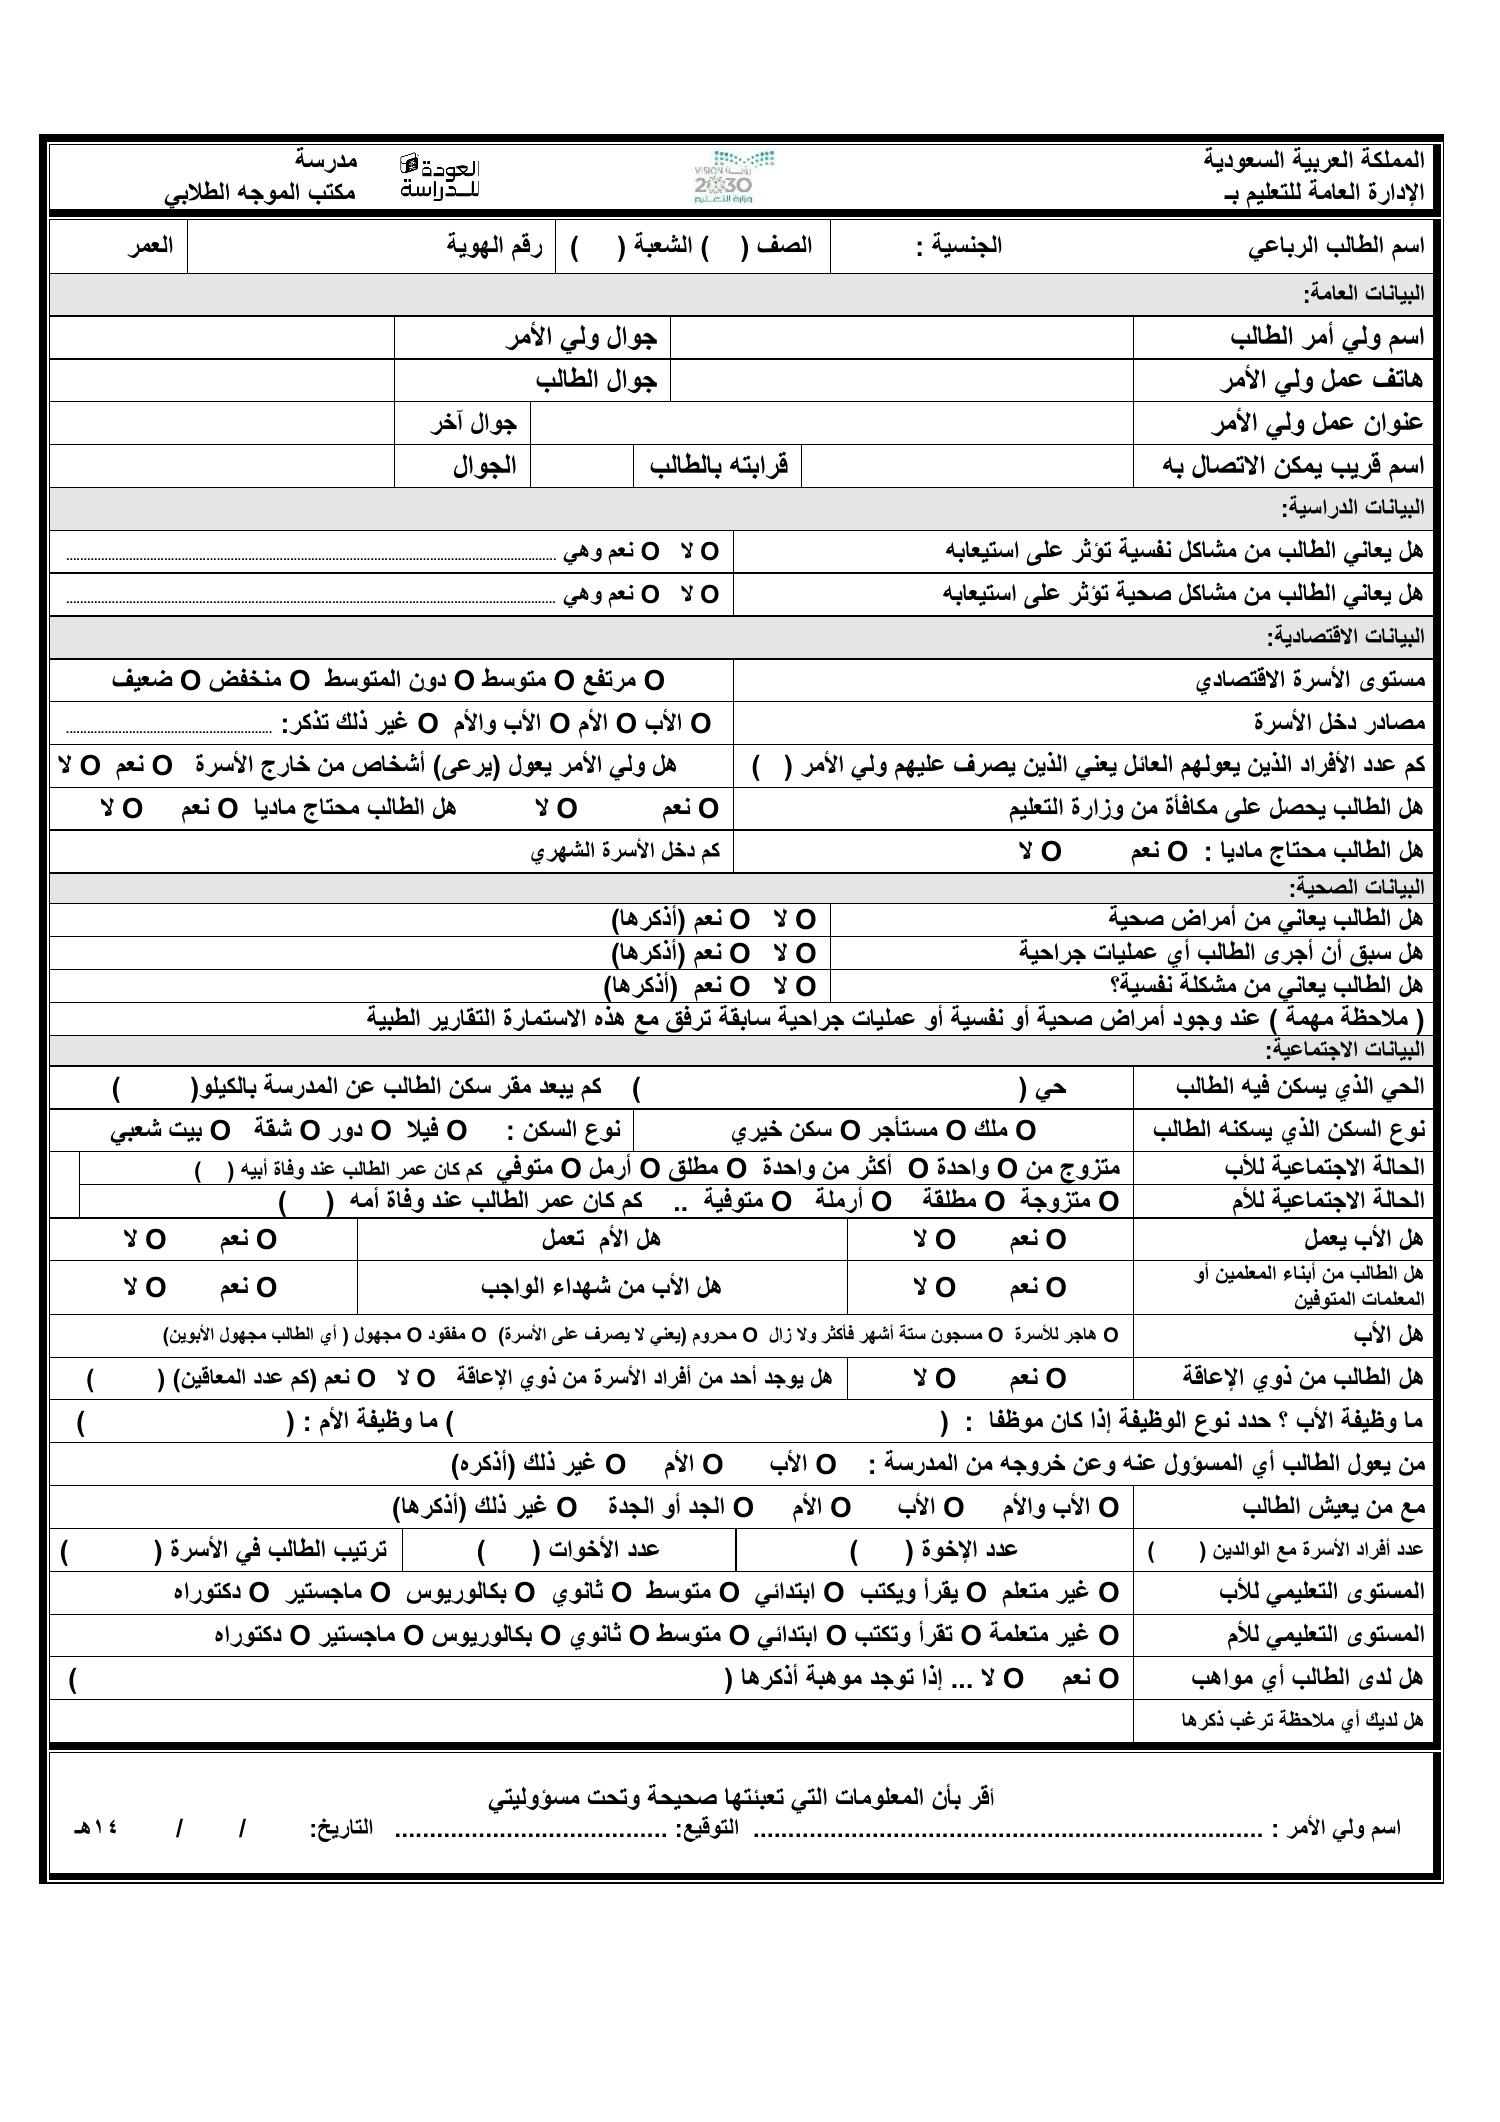 المملكة العربية السعودية
الإدارة العامة للتعليم بـ
VISION رؤيـــة
2030
وزارة التعـليـم
العودة للـدراسة
مدرسة
مكتب الموجه الطلابي
اسم الطالب الرباعي الجنسية : الصف ( ) الشعبة ( ) رقم الهوية العمر
البيانات العامة:
اسم ولي أمر الطالب جوال ولي الأمر
هاتف عمل ولي الأمر جوال الطالب
عنوان عمل ولي الأمر جوال آخر
اسم قريب يمكن الاتصال به قرابته بالطالب الجوال
البيانات الدراسية:
هل يعاني الطالب من مشاكل نفسية تؤثر على استيعابه O لا O نعم وهي ................
هل يعاني الطالب من مشاكل صحية تؤثر على استيعابه O لا O نعم وهي ................
البيانات الاقتصادية:
مستوى الأسرة الاقتصادي O مرتفع O متوسط O دون المتوسط O منخفض O ضعيف
مصادر دخل الأسرة O الأب O الأم O الأب والأم O غير ذلك تذكر: ................
كم عدد الأفراد الذين يعولهم العائل يعني الذين يصرف عليهم ولي الأمر ( ) هل ولي الأمر يعول (يرعى) أشخاص من خارج الأسرة O نعم O لا
هل الطالب يحصل على مكافأة من وزارة التعليم O نعم O لا هل الطالب محتاج ماديا O نعم O لا
هل الطالب محتاج ماديا : O نعم O لا كم دخل الأسرة الشهري
البيانات الصحية:
هل الطالب يعاني من أمراض صحية O لا O نعم (أذكرها)
هل سبق أن أجرى الطالب أي عمليات جراحية O لا O نعم (أذكرها)
هل الطالب يعاني من مشكلة نفسية؟ O لا O نعم (أذكرها)
( ملاحظة مهمة ) عند وجود أمراض صحية أو نفسية أو عمليات جراحية سابقة ترفق مع هذه الاستمارة التقارير الطبية
البيانات الاجتماعية:
الحي الذي يسكن فيه الطالب حي ( ) كم يبعد مقر سكن الطالب عن المدرسة بالكيلو( )
نوع السكن الذي يسكنه الطالب O ملك O مستأجر O سكن خيري نوع السكن : O فيلا O دور O شقة O بيت شعبي
الحالة الاجتماعية للأب متزوج من O واحدة O أكثر من واحدة O مطلق O أرمل O متوفي كم كان عمر الطالب عند وفاة أبيه ( )
الحالة الاجتماعية للأم O متزوجة O مطلقة O أرملة O متوفية .. كم كان عمر الطالب عند وفاة أمه ( )
هل الأب يعمل O نعم O لا هل الأم تعمل O نعم O لا
هل الطالب من أبناء المعلمين أو
المعلمات المتوفين O نعم O لا هل الأب من شهداء الواجب O نعم O لا
هل الأب O هاجر للأسرة O مسجون ستة أشهر فأكثر ولا زال O محروم (يعني لا يصرف على الأسرة) O مفقود O مجهول ( أي الطالب مجهول الأبوين)
هل الطالب من ذوي الإعاقة O نعم O لا هل يوجد أحد من أفراد الأسرة من ذوي الإعاقة O لا O نعم (كم عدد المعاقين) ( )
ما وظيفة الأب ؟ حدد نوع الوظيفة إذا كان موظفا : ( ) ما وظيفة الأم : ( )
من يعول الطالب أي المسؤول عنه وعن خروجه من المدرسة : O الأب O الأم O غير ذلك (أذكره)
مع من يعيش الطالب O الأب والأم O الأب O الأم O الجد أو الجدة O غير ذلك (أذكرها)
عدد أفراد الأسرة مع الوالدين ( ) عدد الإخوة ( ) عدد الأخوات ( ) ترتيب الطالب في الأسرة ( )
المستوى التعليمي للأب O غير متعلم O يقرأ ويكتب O ابتدائي O متوسط O ثانوي O بكالوريوس O ماجستير O دكتوراه
المستوى التعليمي للأم O غير متعلمة O تقرأ وتكتب O ابتدائي O متوسط O ثانوي O بكالوريوس O ماجستير O دكتوراه
هل لدى الطالب أي مواهب O نعم O لا ... إذا توجد موهبة أذكرها ( )
هل لديك أي ملاحظة ترغب ذكرها
أقر بأن المعلومات التي تعبئتها صحيحة وتحت مسؤوليتي
اسم ولي الأمر : ................ التوقيع: ................ التاريخ: / / ١٤هـ